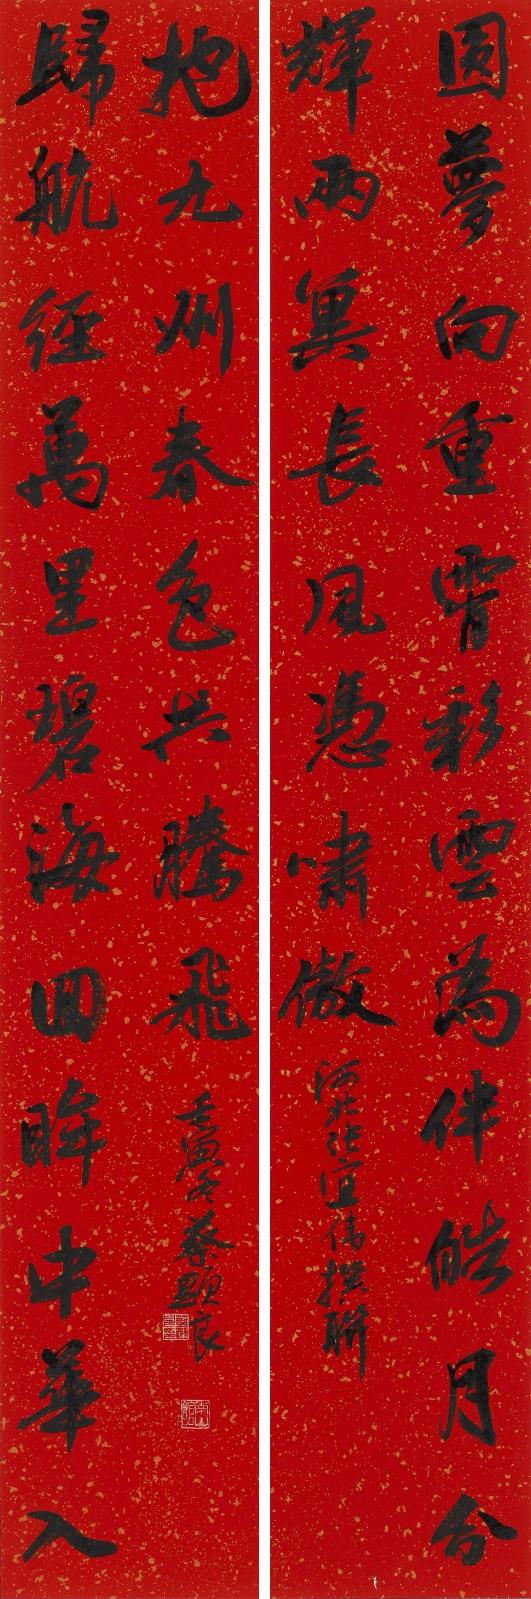 圓夢向重霄彩雲為伴皓月分
輝兩翼長風憑嘯傲
河北張宜偉撰聯
歸航經萬里碧海回眸中華入
抱九州春色共騰飛
壬寅冬蔡顯良